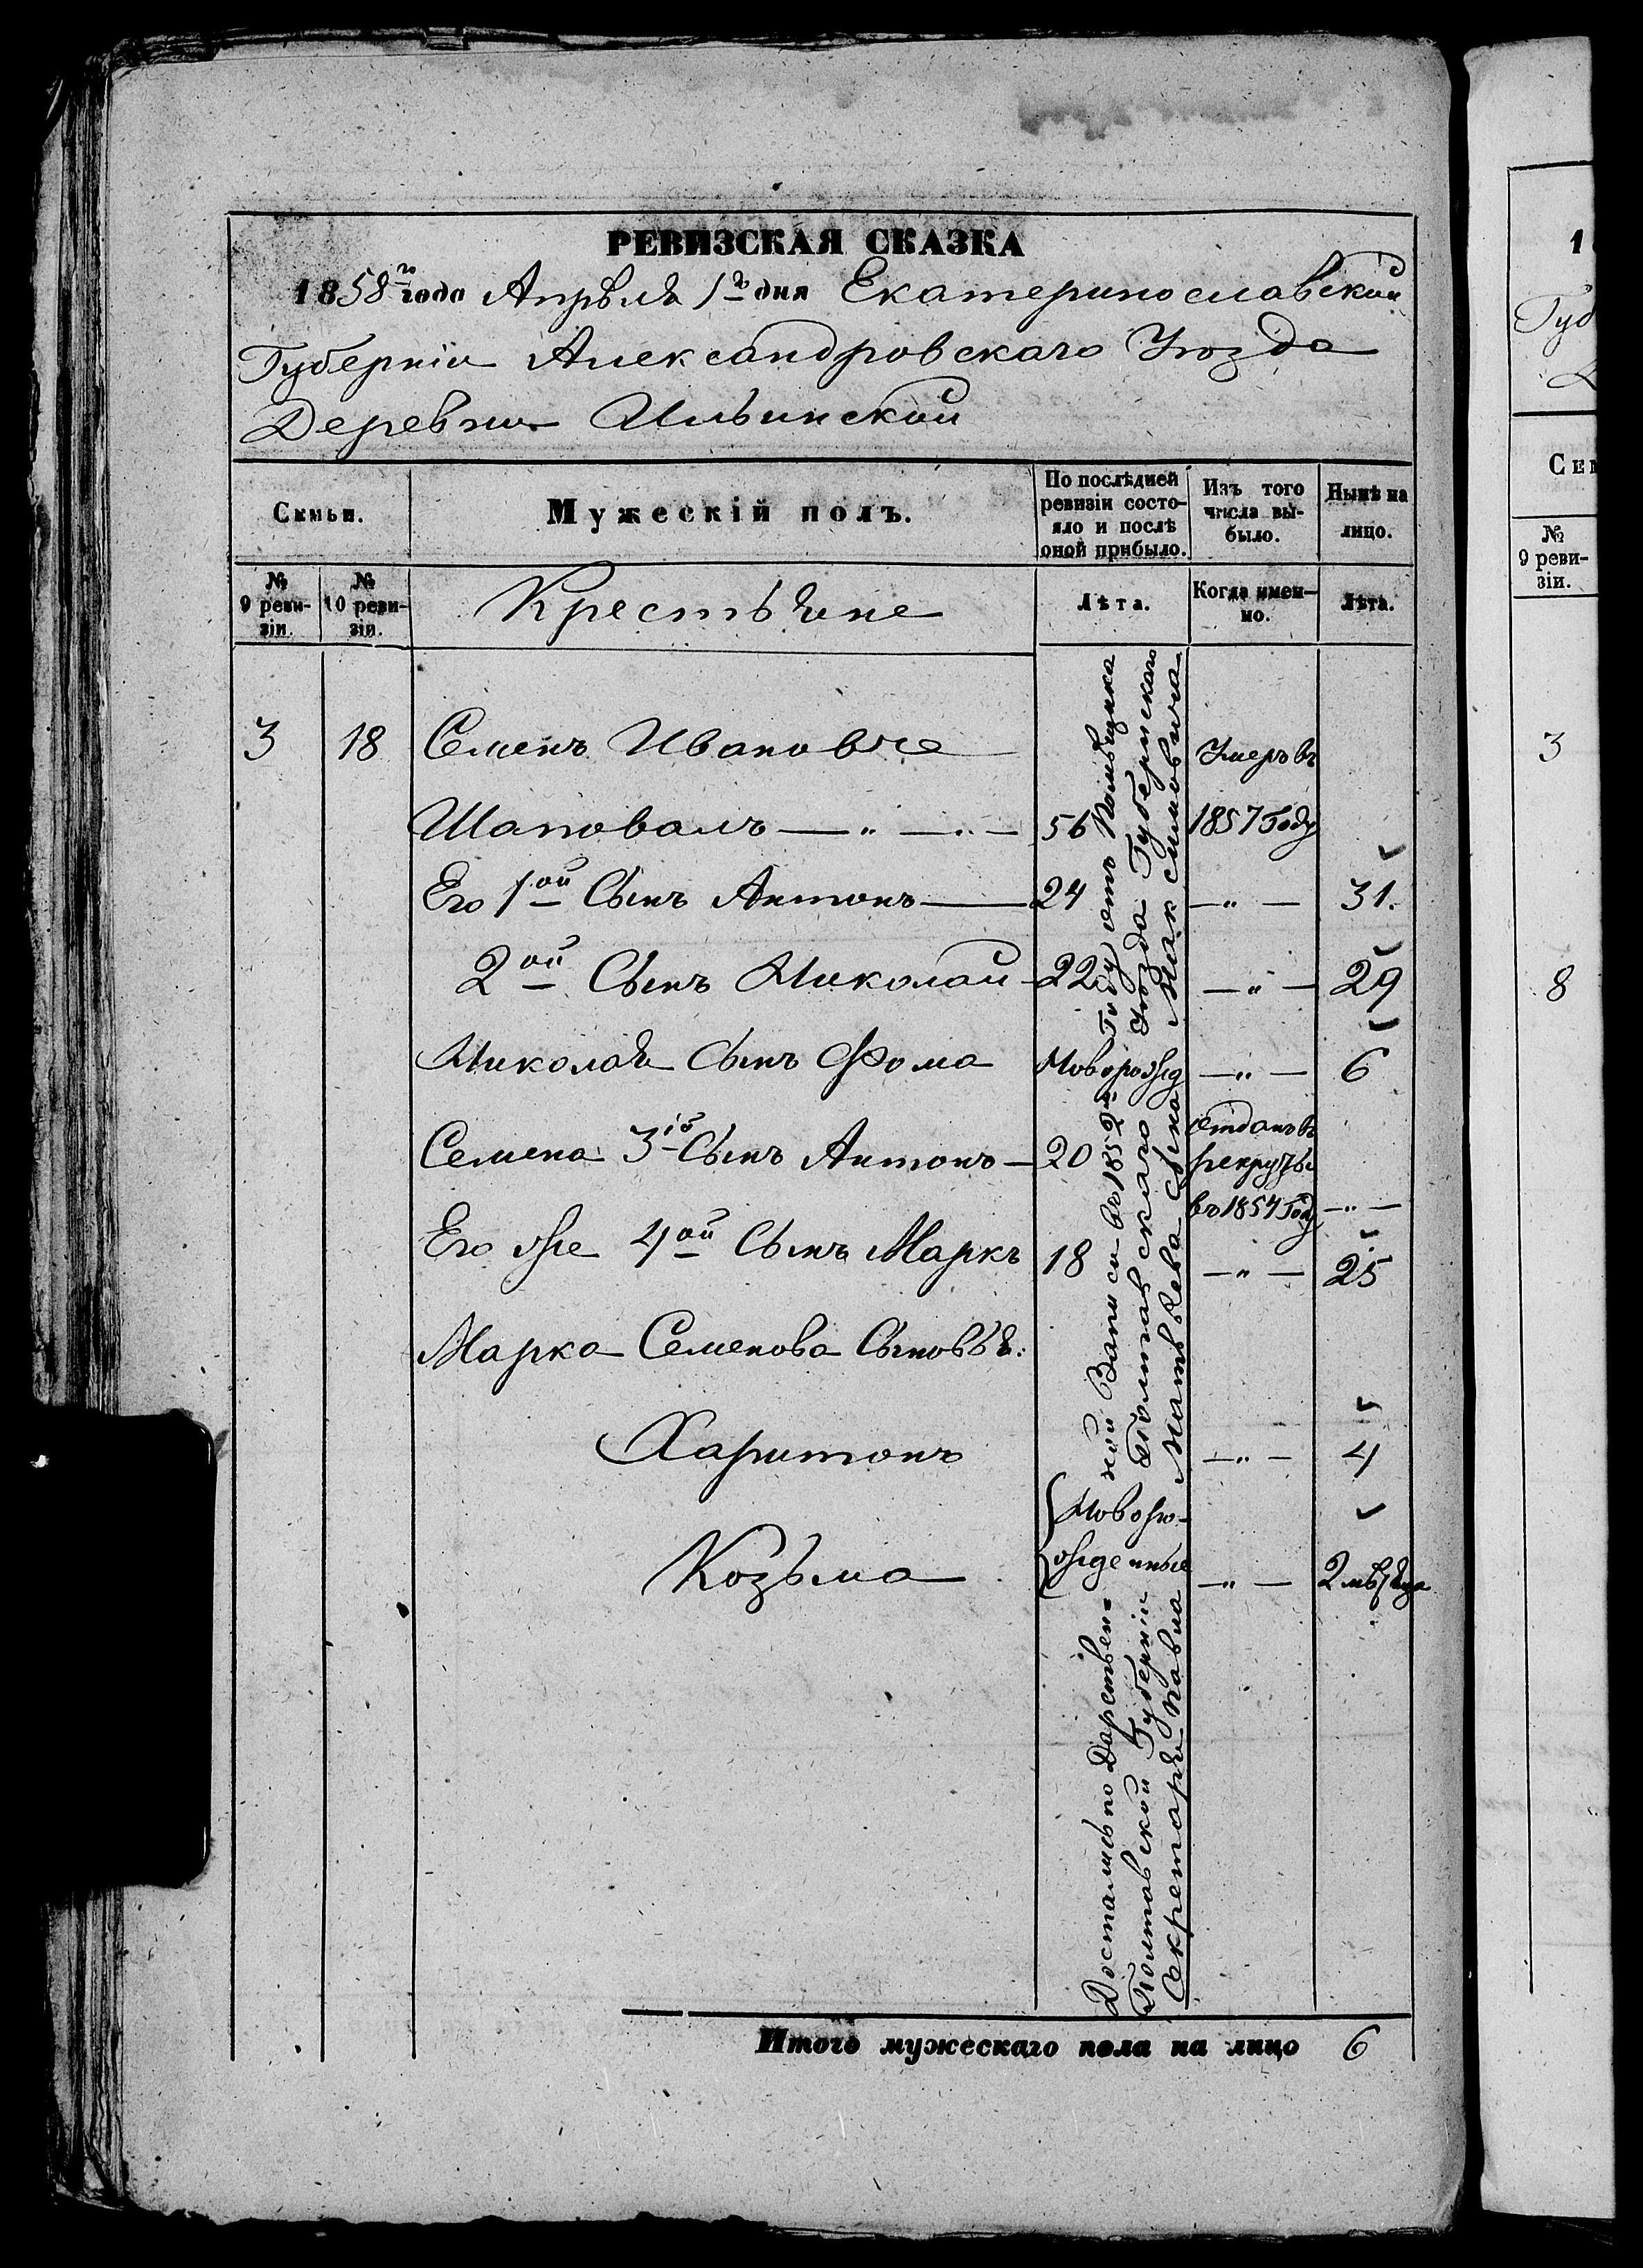 РЕВИЗСКАЯ СКАЗКА
1858го года Апрѣля 1го дня Екатеринославской
Губерніи Александровскаго Уѣзда
Деревни Ильинской
Семьи.
Мужескій полъ.
По послѣдней
ревизіи состо-
яло и послѣ
оной прибыло.
Изъ того
числа вы-
было.
Нынѣ на
лицо.
№
9 реви-
зіи.
№
10 реви-
зіи.
Крестьяне
Лѣта.
Когда имен-
но.
Лѣта.
3 18 Семенъ Ивановъ Умеръ въ
Шаповалъ — „ — „ — 56 1857 Году
Его 1ой Сынъ Антонъ — 24 — „ — 31.
2ой Сынъ Николай 22 — „ — 29
Николая Сынъ ФомаНоворожд — „ — 6
Семена 3ій Сынъ Антонъ — 20 отданъ въ
рекруты
въ 1854 Году — „ —
Его же 4ой Сынъ Маркъ 18 — „ — 25
Марка Семенова Сыновья:
Харитонъ — „ — 4
{ Новоро-
жденные
Козьма — „ — 2 мѣсяца
Достались по Дарствен=ной Записи въ 1852м Году отъ Помѣщика
Полтавской Губерніи Полтавскаго Уѣзда Губернскаго
Секретаря Павла Матвѣева сына Максимовича.
Итого мужескаго пола на лицо 6
1
Губ
Сем
№
9 реви-
зіи.
3
8